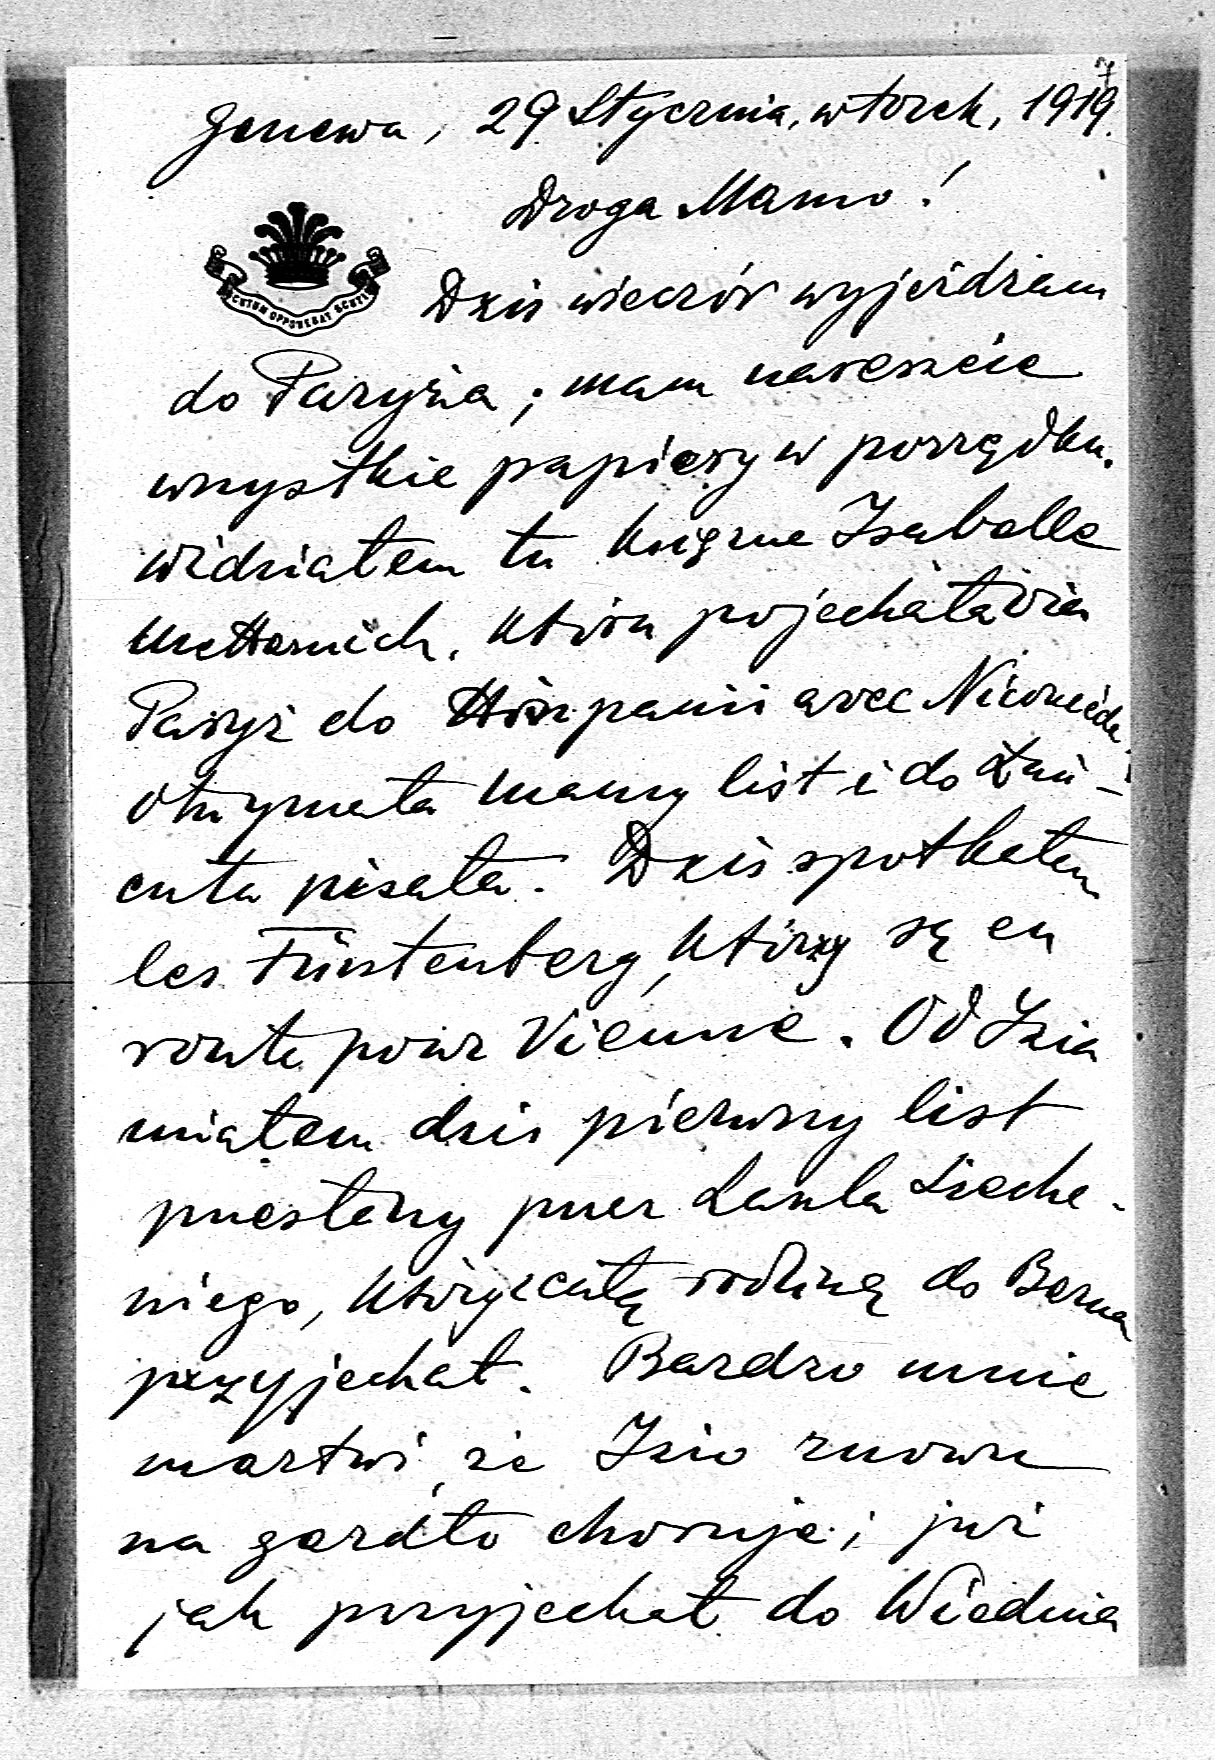 Genewa, 29 Stycznia, wtorek, 1919.
7
Droga Mamo!
SCUTUM OPPONEBAT SCUTI
Dziś wieczór wyjeżdżam
do Paryża; mam nareszcie
wszystkie papiery w porządku.
Widziałem tu księżne Isabelle
Metternich, która pojechała via
Paryż do Hiszpanii avec Nicomède.
Otrzymała mamy list i do Łań-
cuta pisała. Dziś spotkałem
les Fürstenberg, którzy są en
route pour Vienne. Od Izia
miałem dziś pierwszy list
przesłany przez Laszla Szeche-
niego, który z całą rodziną do Berna
przyjechał. Bardzo mnie
martwi, że Izio znowu
na gardło choruje; już
jak przyjechał do Wiednia